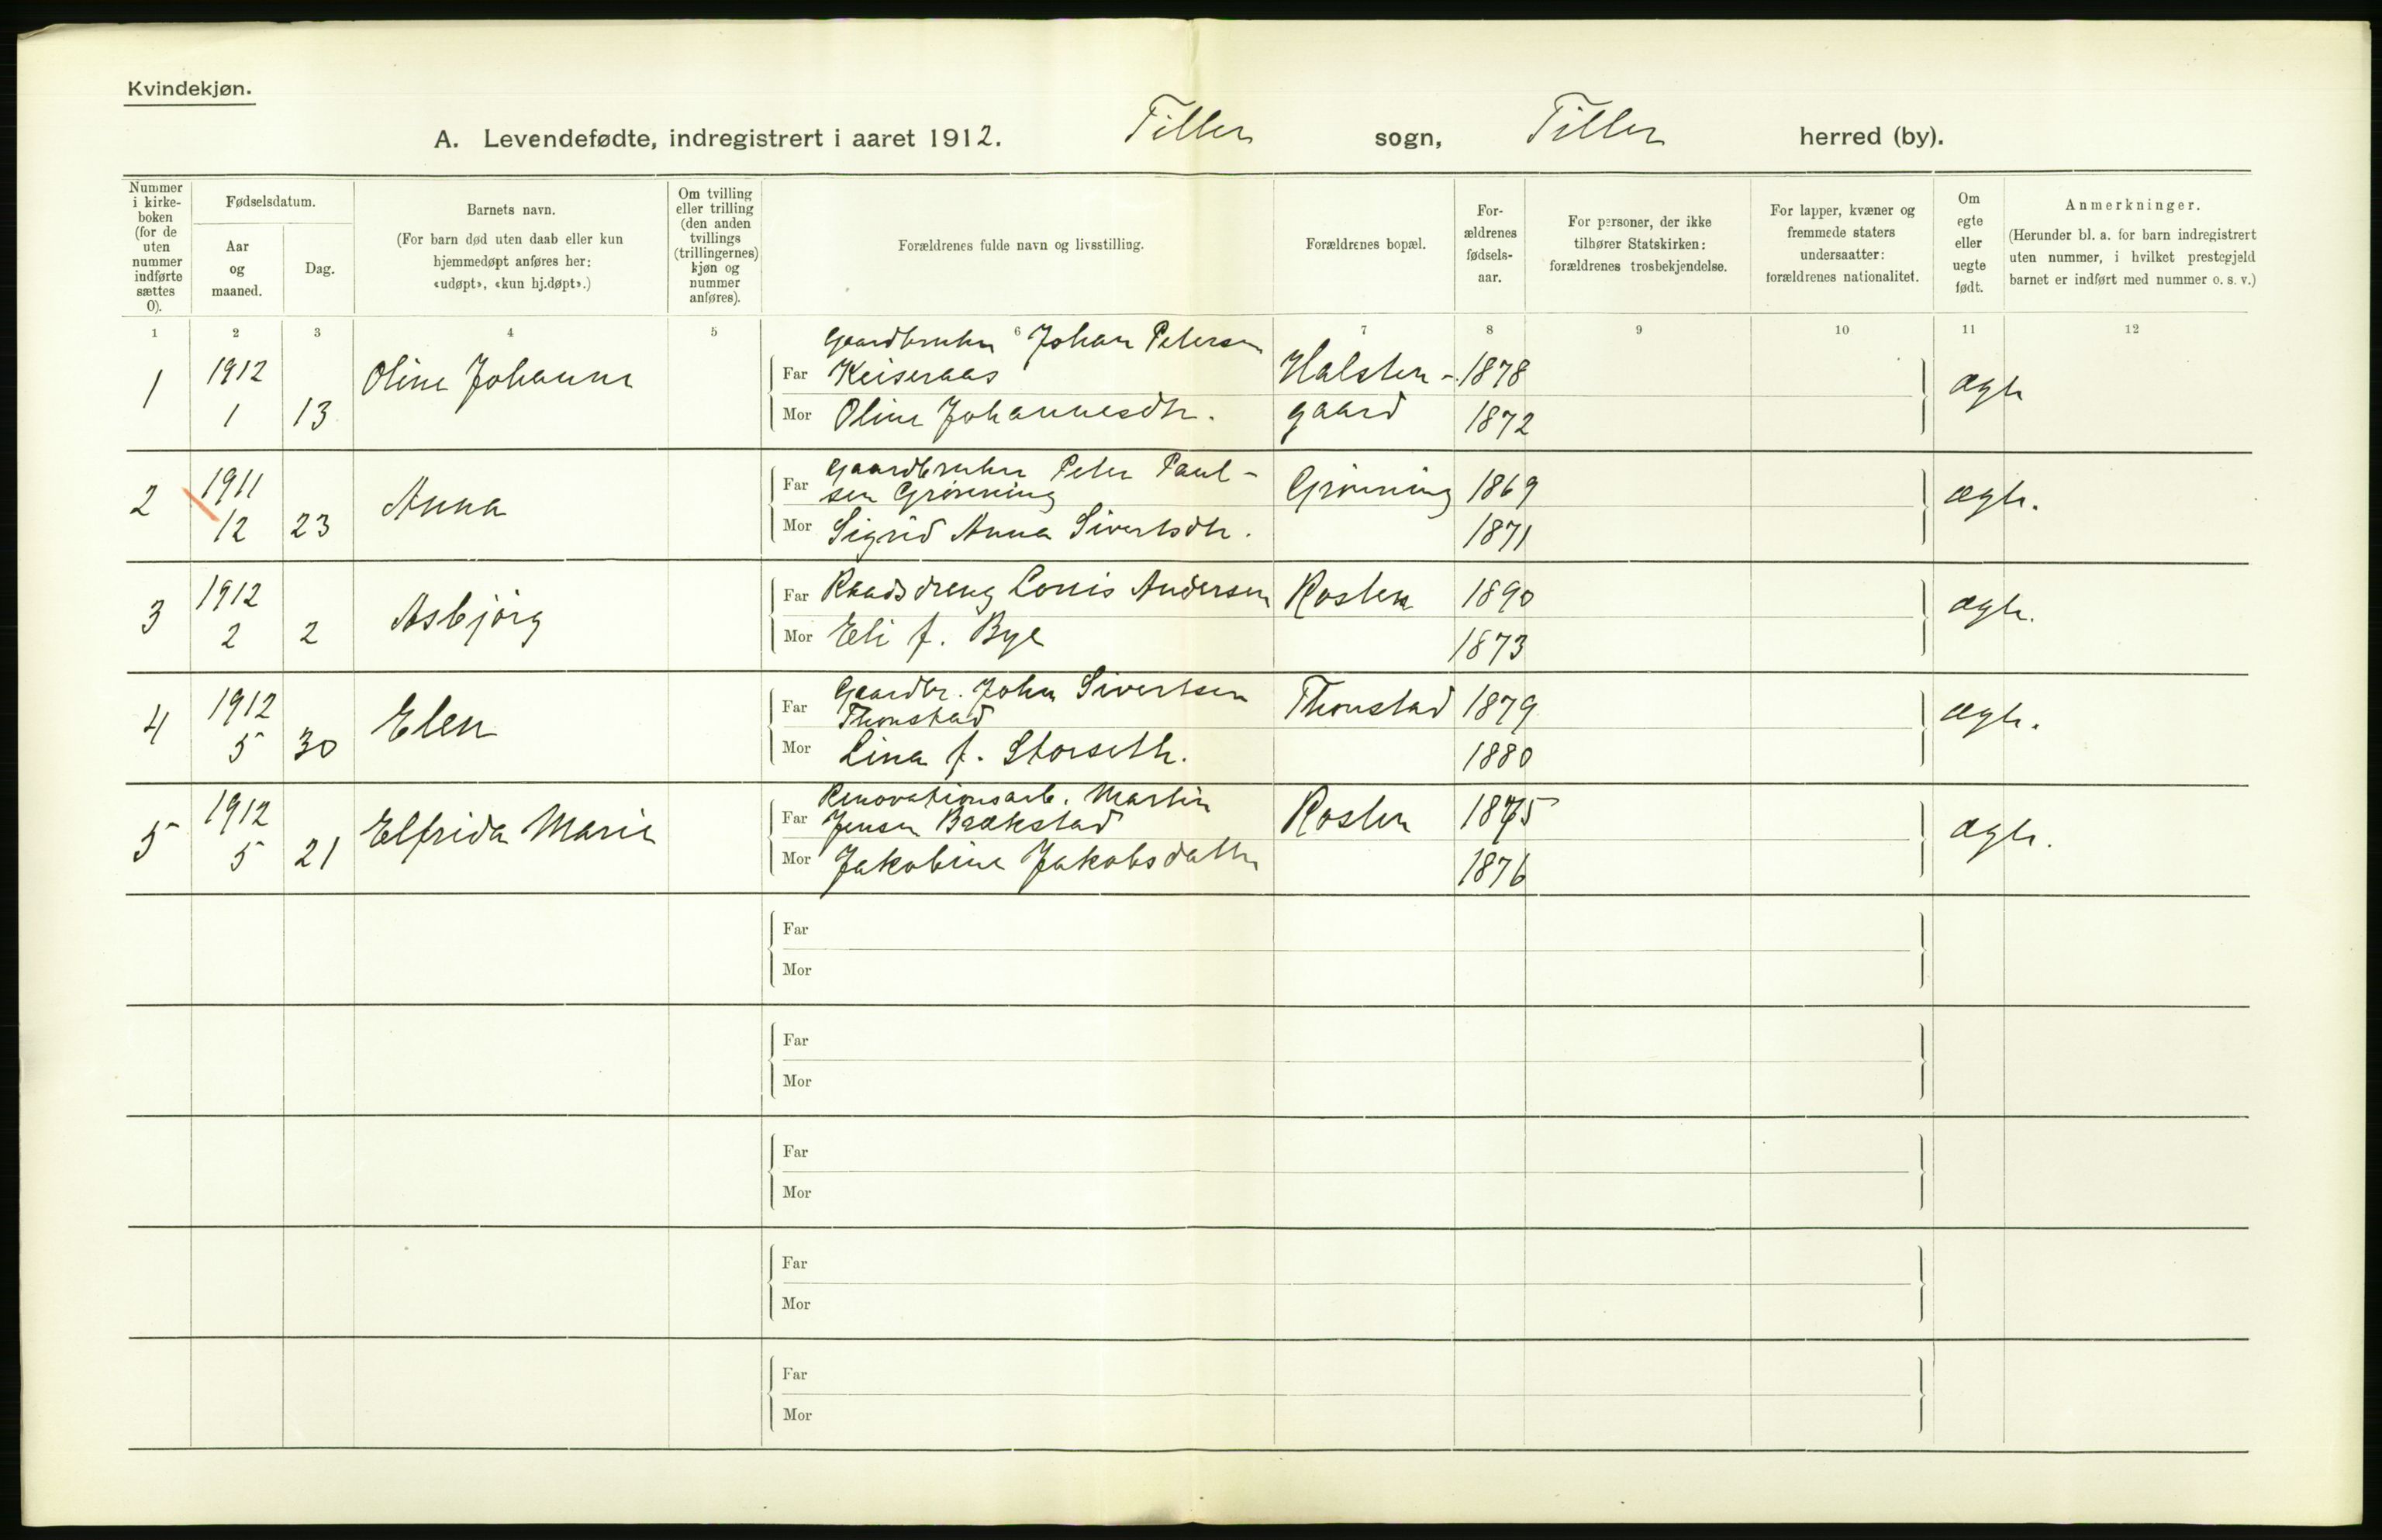 Kvindekjøn.
A. Levendefødte, indregistrert i aaret 1912. Tiller sogn, Tiller herred (by).
Nummer i kirke- boken (for de uten nummer indførte sættes 0).
Fødselsdatum.
Aar og maaned.
Dag.
Barnets navn.
(For barn død uten daab eller kun hjemmedøpt anføres her: «udøpt», «kun hj.døpt».)
Om tvilling eller trilling (den anden tvillings (trillingernes) kjøn og nummer anføres).
Forældrenes fulde navn og livsstilling.
Forældrenes bopæl.
For- ældrenes fødsels- aar.
For personer, der ikke tilhører Statskirken: forældrenes trosbekjendelse.
For lapper, kvæner og fremmede staters undersaatter: forældrenes nationalitet.
Om egte eller uegte født.
Anmerkninger.
(Herunder bl. a. for barn indregistrert uten nummer, i hvilket prestegjeld barnet er indført med nummer o. s. v.)
1 2 3 4 5 6 7 8 9 10 11 12
Gaardbruker Johan Petersen
1 1912 Oline Johanne Far Keiseraas Halsten- 1878 ægte
1 13 Mor Oline Johannesdtr. gaard 1872
Gaardbruker Peter Paul-
2 1911 Anna Far sen Grønning Grønning 1869 ægte.
12 23 Mor Sigrid Anna Sivertsdtr. 1871
3 1912 Asbjörg Far Raadsdreng Louis Andersen Rosten 1890 ægte.
2 2 Mor Eli f. Bye 1873
Gaardbr. John Sivertsen
4 1912 Elen Far Thonstad Thonstad 1879 ægte.
5 30 Mor Lina f. Storseth. 1880
Renovationsarb. Martin
5 1912 Elfrida Marie Far Jensen Brækstad Rosten 1875 ægte.
5 21 Mor Jakobine Jakobsdatter 1876
Far
Mor
Far
Mor
Far
Mor
Far
Mor
Far
Mor